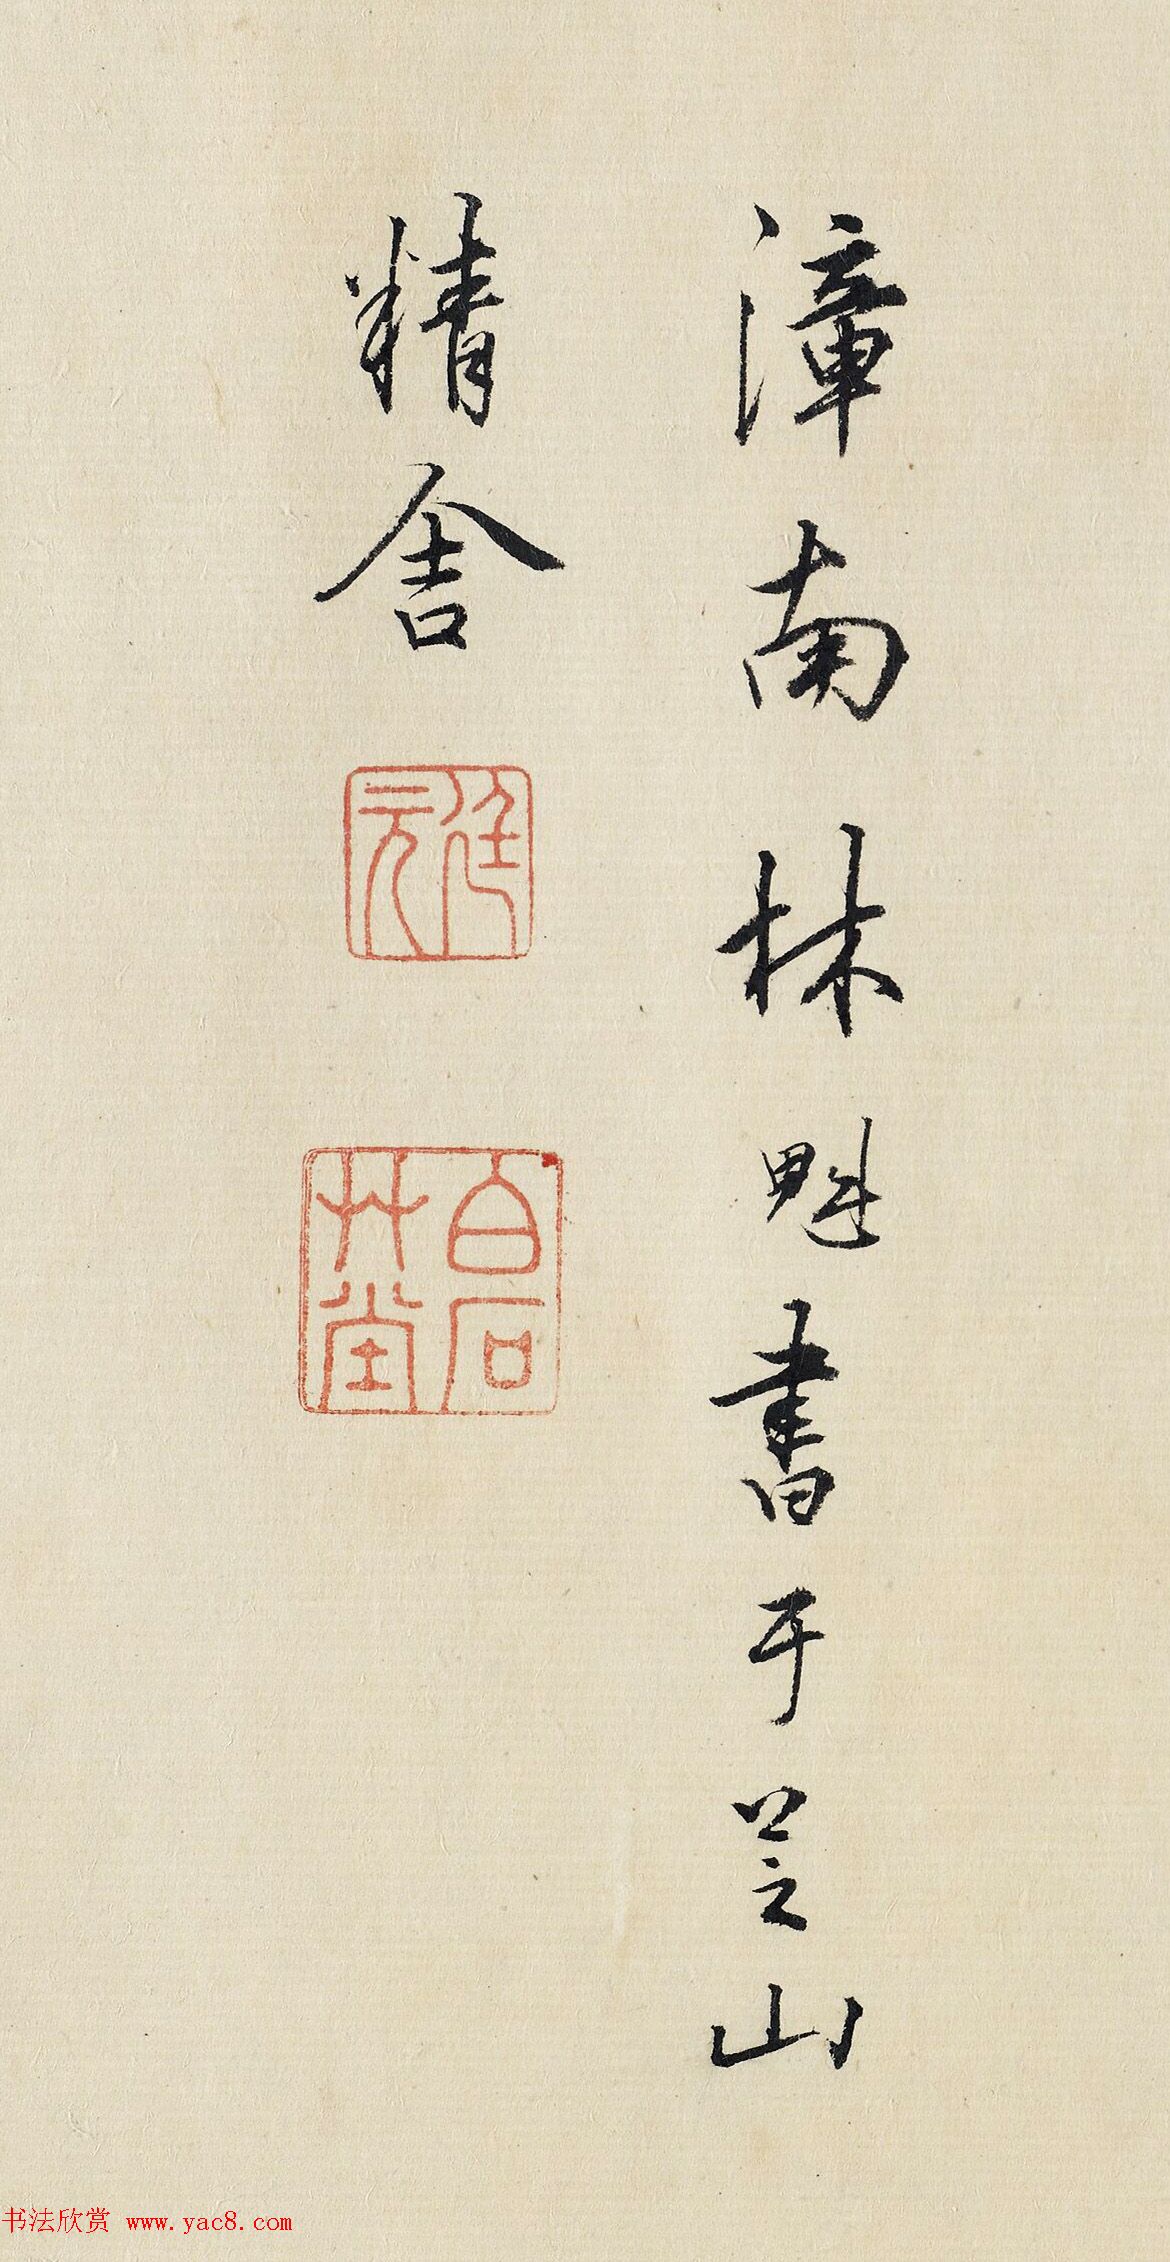 漳南林魁書于芝山
精舍
廷元
白石
艸堂
书法欣赏 www.yac8.com